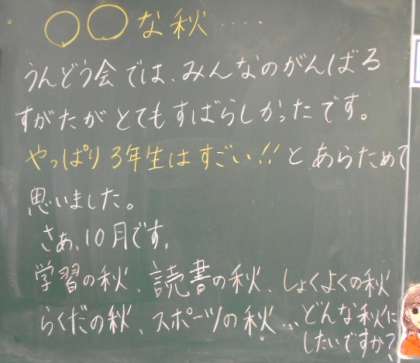 ○○な秋‥‥
うんどう会では、みんなのがんばる
すがたがとてもすばらしかったです。
やっぱり3年生はすごい!!とあらためて
思いました。
さあ、10月です。
学習の秋、読書の秋、しょくよくの秋
らくだの秋、スポーツの秋…、どんな秋に
したいですか？